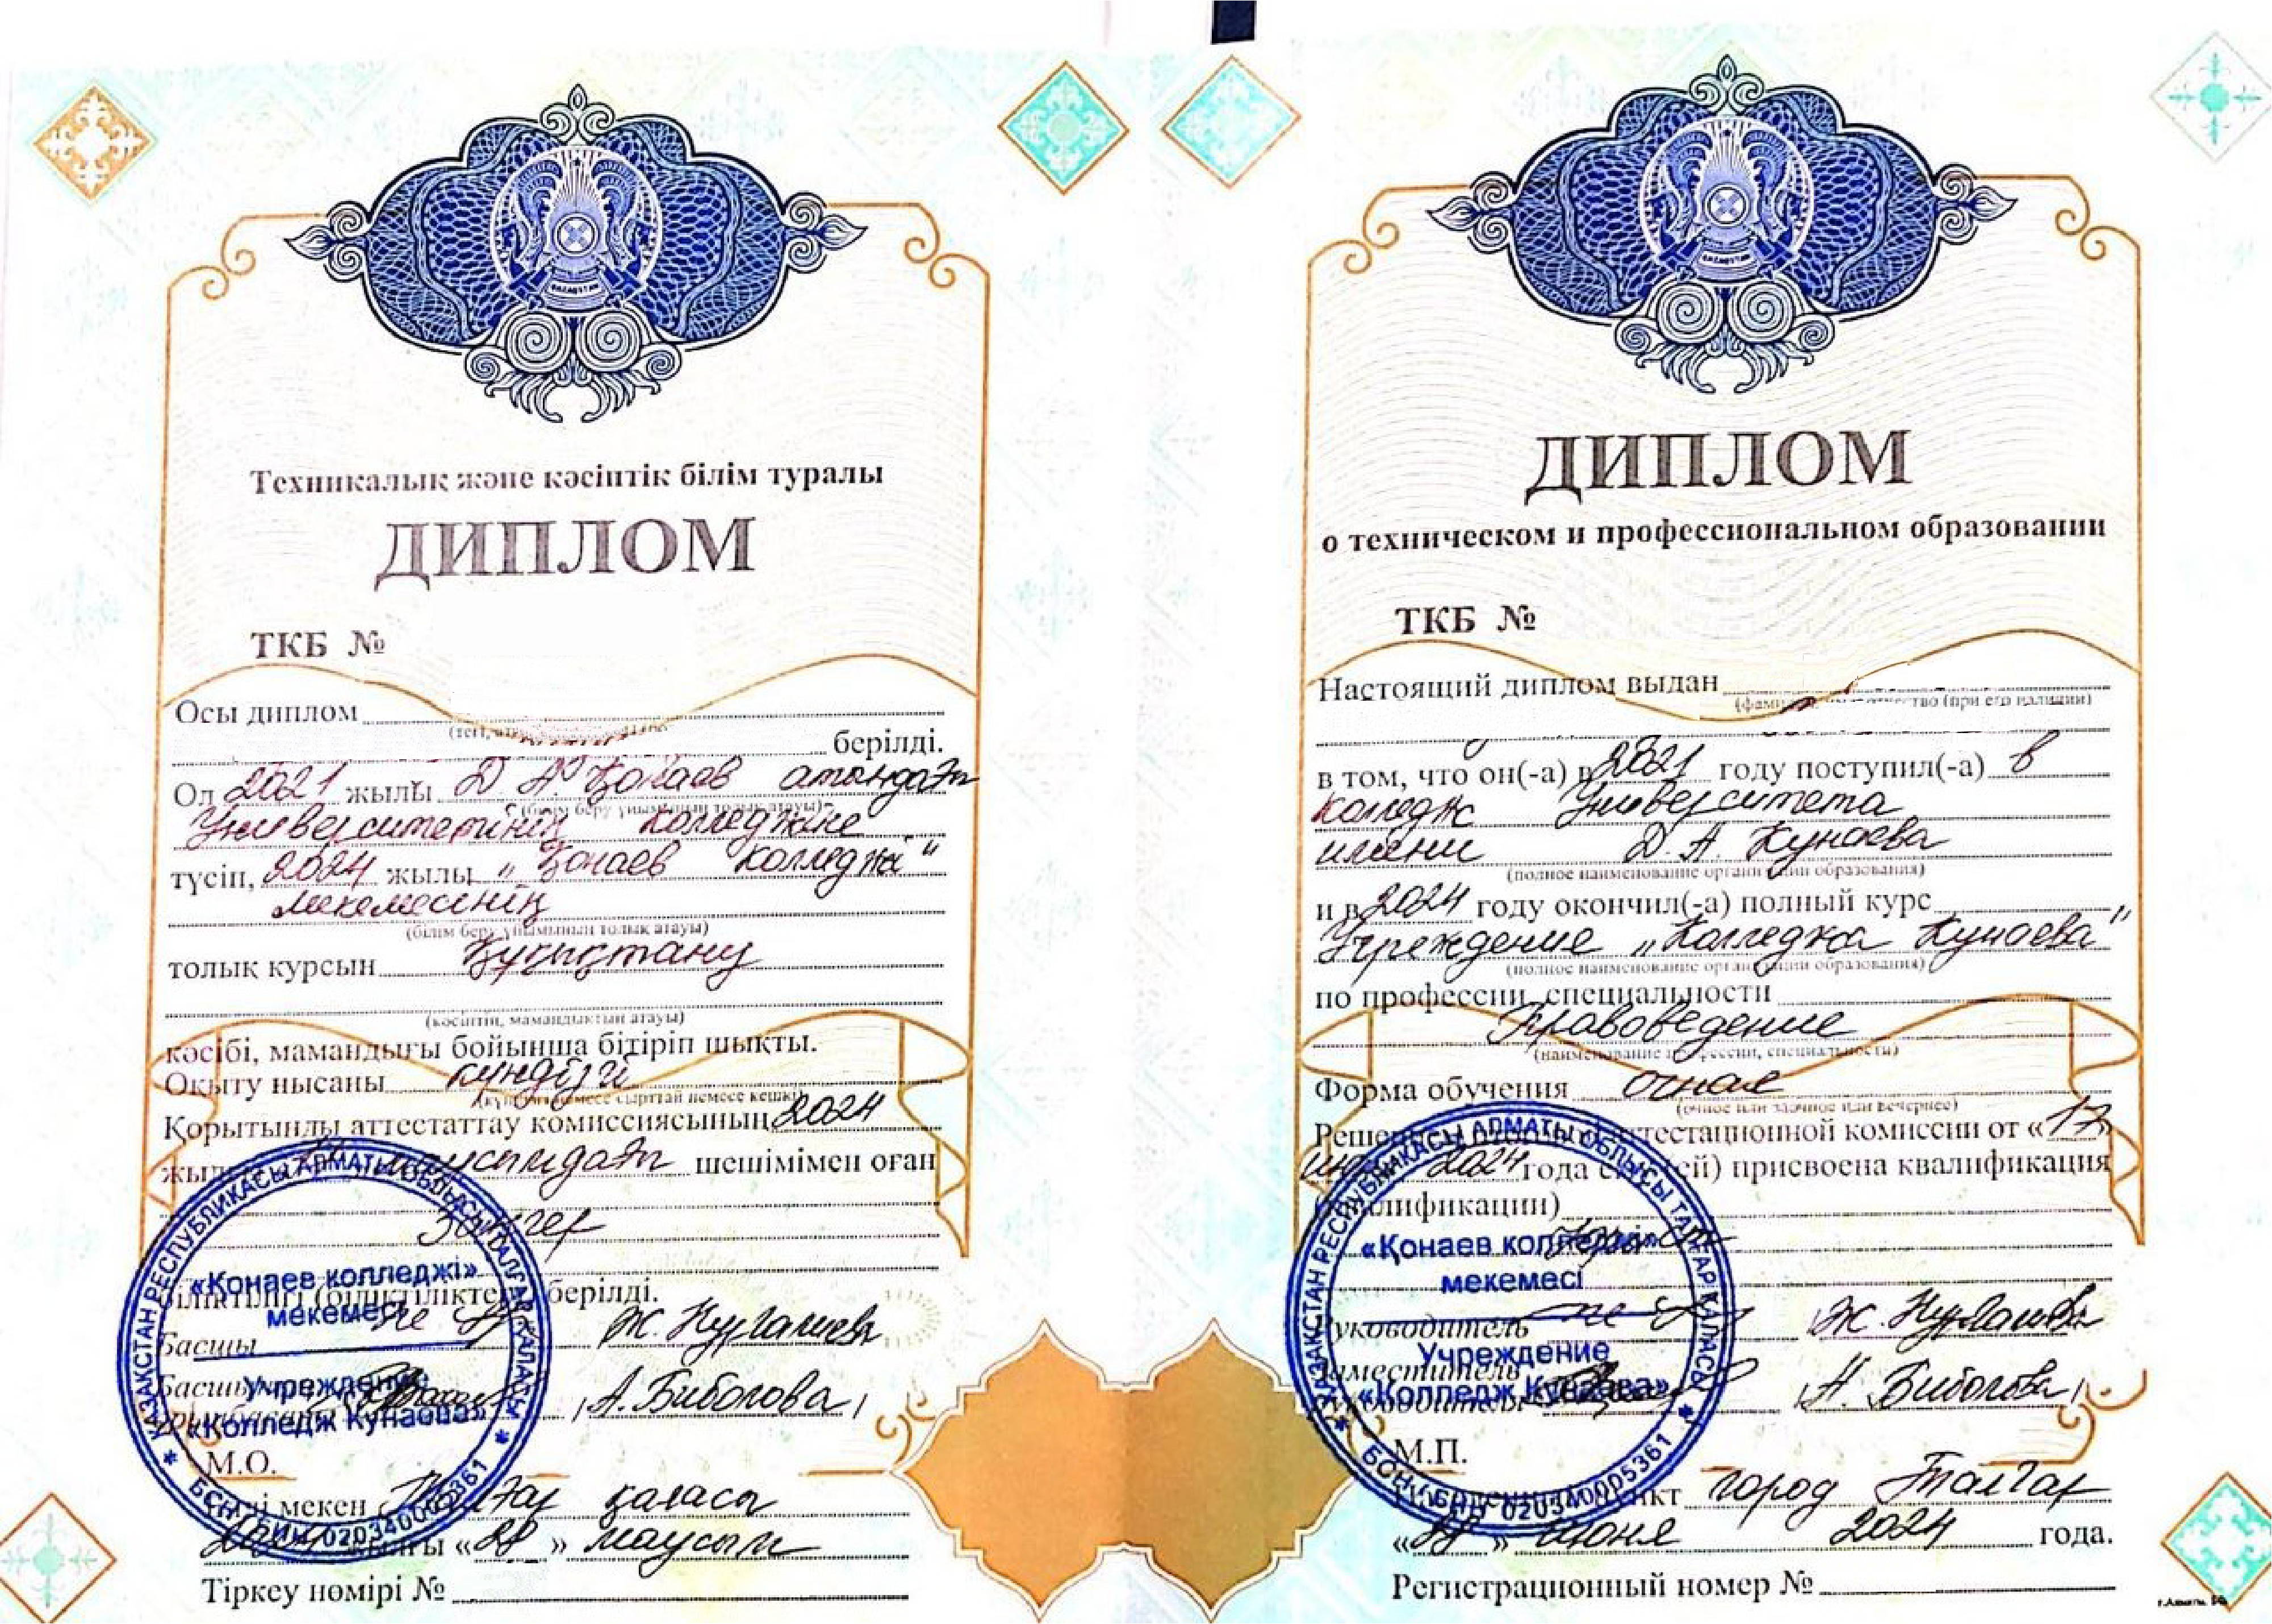 Техникалық және кәсіптік білім туралы
ДИПЛОМ
ТКБ №
Осы диплом
берілді.
Ол 2021 жылы Д. А. Қонаев атындағы
(білім беру ұйымының толық атауы)
Университетінің колледжіне
түсіп, 2024 жылы „Қонаев колледжі"
мекемесінің
(білім беру ұйымының толық атауы)
толық курсын Құқықтану
(кәсіптің, мамандықтың атауы)
кәсібі, мамандығы бойынша бітіріп шықты.
Оқыту нысаны күндізгі
(күндізгі немесе сырттай немесе кешкі)
Қорытынды аттестаттау комиссиясының 2024
маусымдағы шешімімен оған
Заңгер
біліктілігі (біліктіліктері) берілді.
Басшы Ж. Нургалиева
Басшының А. Биболова
орынбасары
М.О.
Елді мекен Талғар қаласы
2024 жылғы «28» маусым
Тіркеу нөмірі №
ҚАЗАҚСТАН РЕСПУБЛИКАСЫ АЛМАТЫ ОБЛЫСЫ ТАЛҒАР ҚАЛАСЫ
«Қонаев колледжі»
мекемесі
Учреждение
«Колледж Кунаева»
ДИПЛОМ
о техническом и профессиональном образовании
ТКБ №
Настоящий диплом выдан
в том, что он(-а) в 2021 году поступил(-а) в
колледж Университета
имени Д. А. Кунаева
(полное наименование организации образования)
и в 2024 году окончил(-а) полный курс
Учреждение „Колледжа Кунаева"
(полное наименование организации образования)
по профессии, специальности
Правоведение
(наименование профессии, специальности)
Форма обучения очная
(очное или заочное или вечернее)
Решением итоговой аттестационной комиссии от «17»
2024 года ему (ей) присвоена квалификация
(квалификации)
Юрист
Руководитель Ж. Нургалиева
Заместитель
руководителя А. Биболова
М.П.
Населенный пункт город Талгар
«28» июня 2024 года.
Регистрационный номер №
ҚАЗАҚСТАН РЕСПУБЛИКАСЫ АЛМАТЫ ОБЛЫСЫ ТАЛҒАР ҚАЛАСЫ
«Қонаев колледжі»
мекемесі
Учреждение
«Колледж Кунаева»
БСН / БИН 020340005361